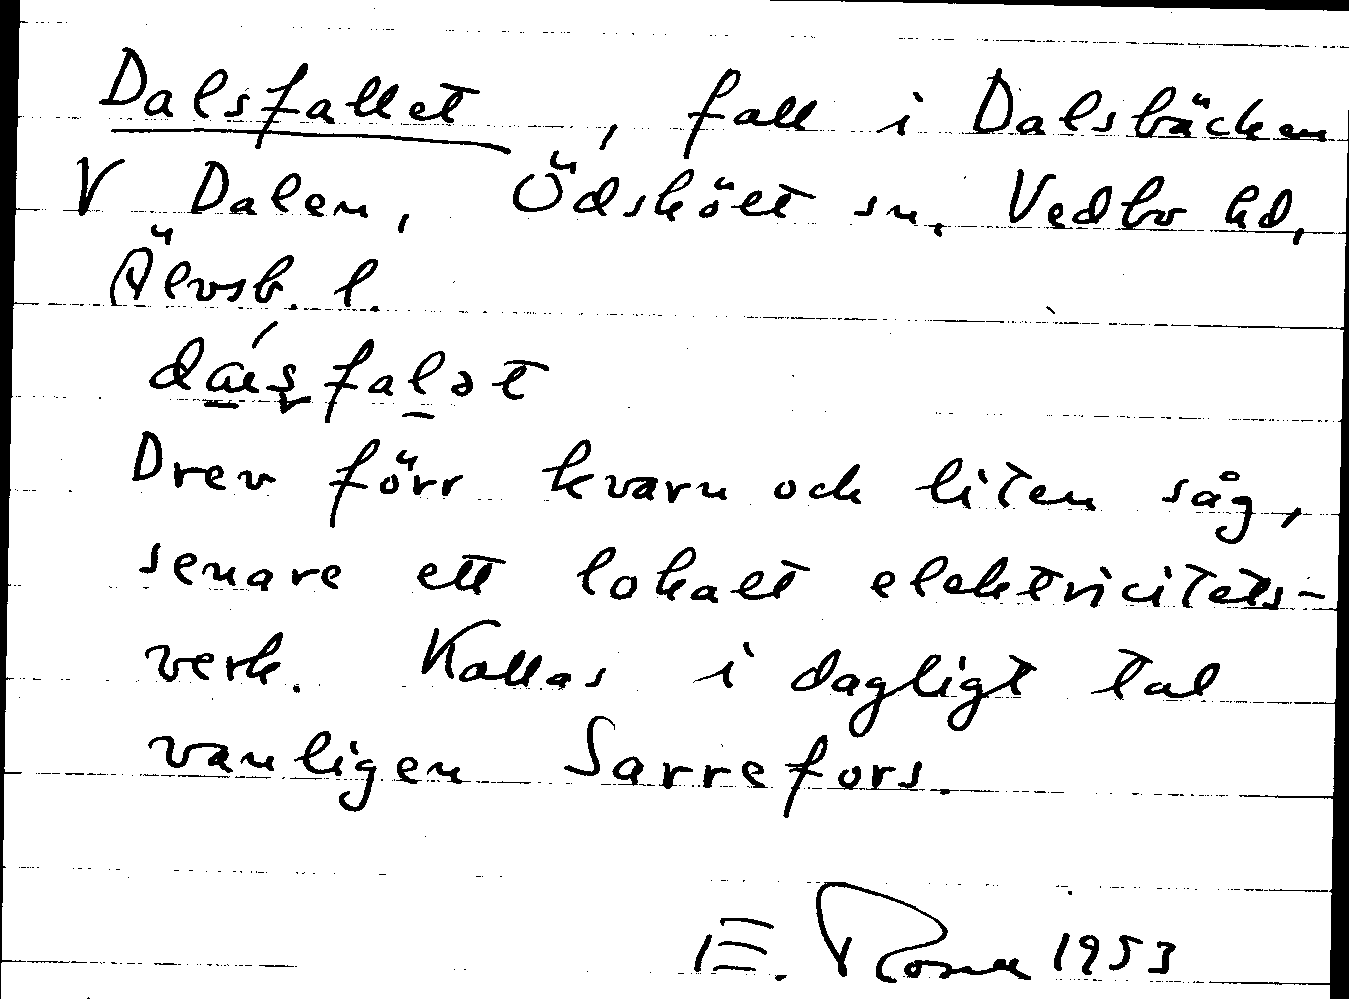 Dalsfallet, fall i Dalsbäcken
V Dalen, Ödskölt sn, Vedbo hd,
Älvsb. l.
falət
Drev förr kvarn och liten såg,
senare ett lokalt elektricitets-
verk. Kallas i dagligt tal
vanligen Sarrefors.
E. 1953